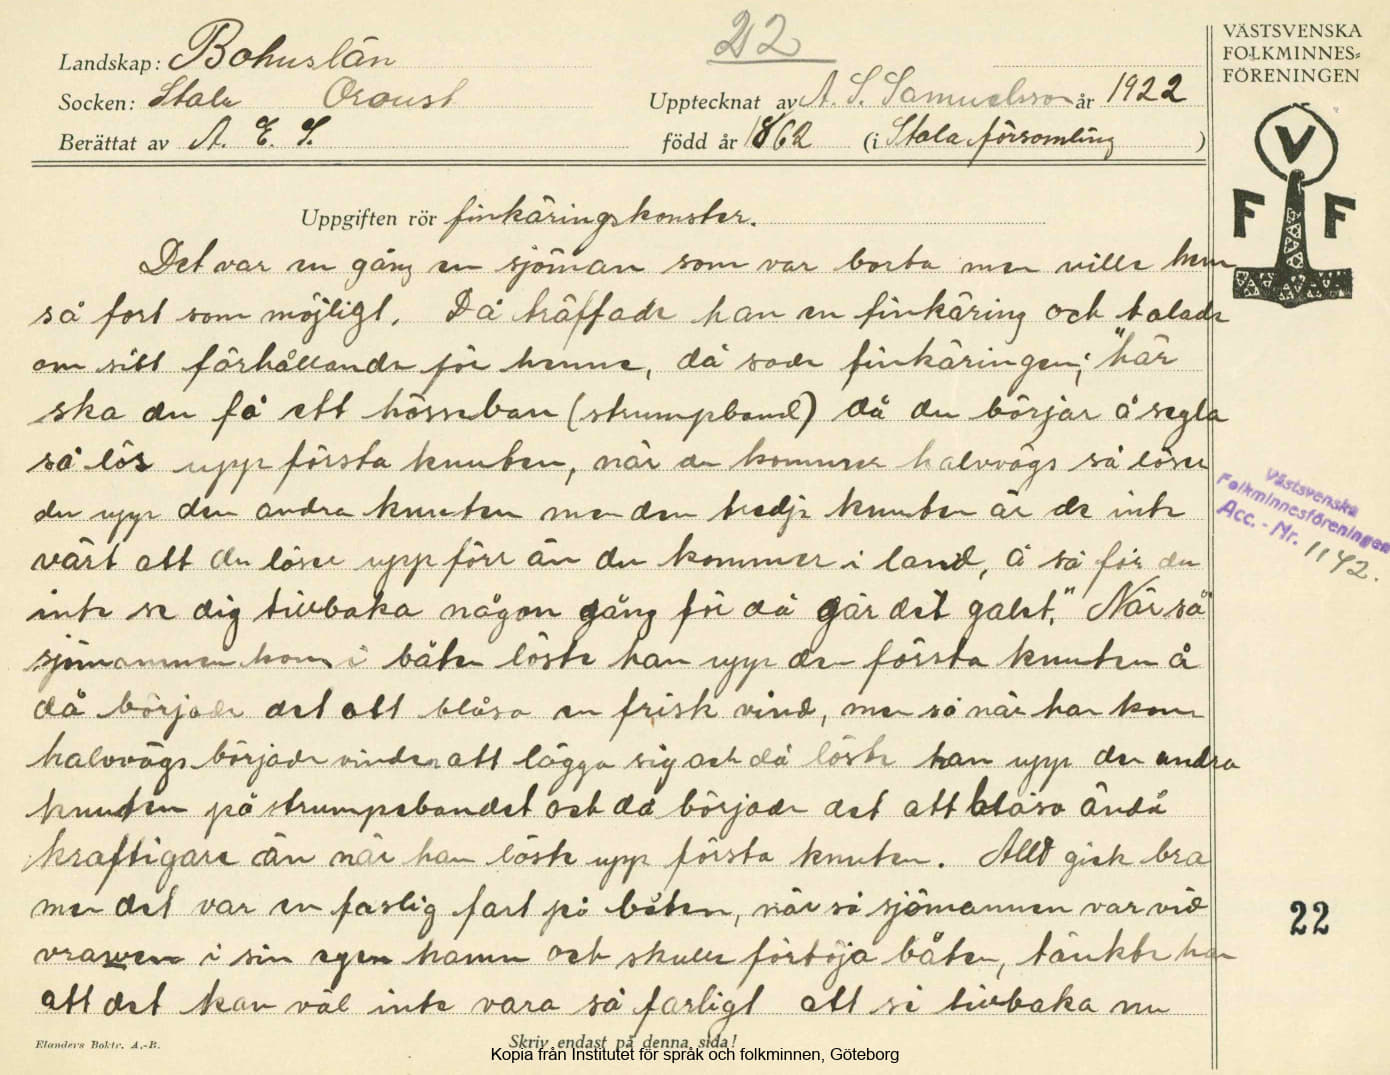 22
VÄSTSVENSKA
FOLKMINNES=
FÖRENINGEN
Landskap: Bohuslän
Socken: Stala Oroust
Upptecknat av A. S. Samuelsson år 1922
Berättat av A. E. S.
född år 1862 (i Stala församling)
V
F F
Uppgiften rör finkäringskonster.
Det var en gång en sjöman som var borta men ville hem
så fort som möjligt. Då träffade han en finkäring och talade
om sitt förhållande för henne, då sade finkäringen; "här
ska du få ett hösseban (strumpband) då du börjar å segla
så lös upp första knuten, när du kommer halvvägs så löser
du upp den andra knuten men den tredje knuten är de inte
värt att du löser upp förr än du kommer i land, å så får du
inte se dig tillbaka någon gång för då går det galet." När så
sjömannen kom i båten löste han upp den första knuten å
då började det att blåsa en frisk vind, men så när han kom
halvvägs började vinden att lägga sig och då löste han upp den andra
knuten på strumpebandet och då började det att blåsa ändå
kraftigare än när han löste upp första knuten. Allt gick bra
men det var en faslig fart på båten, när så sjömannen var vid
i sin egen hamn och skulle förtöja båten, tänkte han
att det kan väl inte vara så farligt att se tillbaka nu
Västsvenska
Folkminnesföreningen
Acc.-Nr. 1142.
22
Elanders Boktr. A.-B.
Skriv endast på denna sida!
Kopia från Institutet för språk och folkminnen, Göteborg